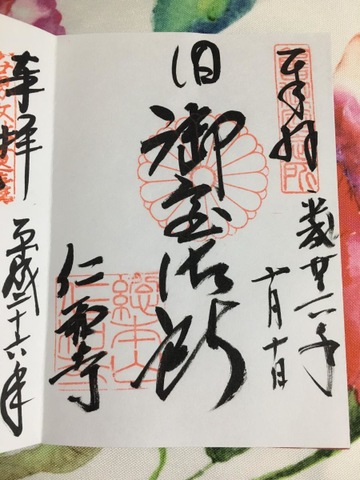 奉拝
平成廿六年
十月十日
旧御室御所
總本山
仁和寺
仁和寺
奉拝
平成二十六年